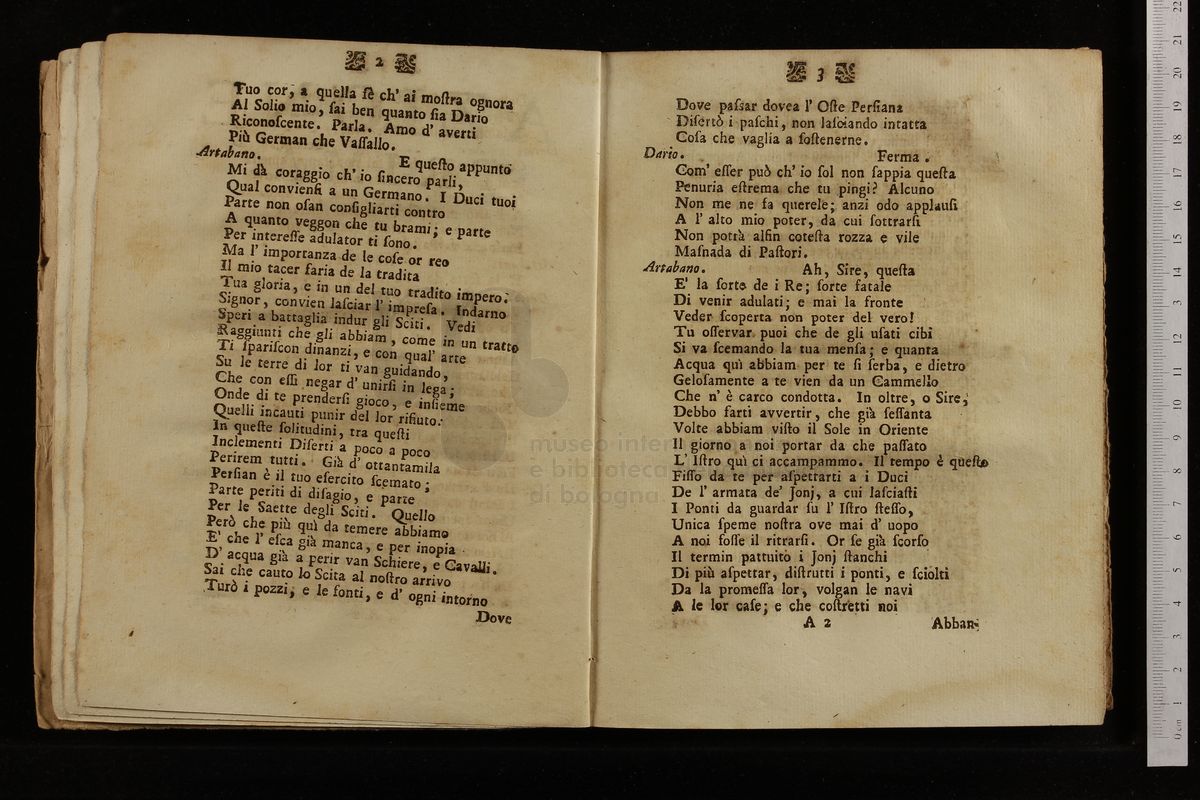 2
Tuo cor, a quella fè ch' ai moſtra ognora
Al Solio mio, ſai ben quanto ſia Dario
Riconoſcente. Parla. Amo d' averti
Più German che Vaſſallo.
Artabano. E queſto appunto
Mi dà coraggio ch' io ſincero parli,
Qual convienſi a un Germano. I Duci tuoi
Parte non oſan conſigliarti contro
A quanto veggon che tu brami; e parte
Per intereſſe adulator ti ſono.
Ma l' importanza de le coſe or reo
Il mio tacer faria de la tradita
Tua gloria, e in un del tuo tradito impero.
Signor, convien laſciar l' impreſa. Indarno
Speri a battaglia indur gli Sciti. Vedi
Raggiunti che gli abbiam, come in un tratto
Ti ſpariſcon dinanzi, e con qual' arte
Su le terre di lor ti van guidando,
Che con eſſi negar d' unirſi in lega;
Onde di te prenderſi gioco, e inſieme
Quelli incauti punir del lor rifiuto.
In queſte ſolitudini, tra queſti
Inclementi Diſerti a poco a poco
Perirem tutti. Già d' ottantamila
Perſian è il tuo eſercito ſcemato;
Parte periti di diſagio, e parte
Per le Saette degli Sciti. Quello
Però che più quì da temere abbiamo
E' che l' eſca già manca, e per inopia
D' acqua già a perir van Schiere, e Cavalli.
Sai che cauto lo Scita al noſtro arrivo
Turò i pozzi, e le fonti, e d' ogni intorno
Dove
3
Dove paſsar dovea l' Oſte Perſiana
Diſertò i paſchi, non laſciando intatta
Coſa che vaglia a ſoſtenerne.
Dario. Ferma.
Com' eſſer può ch' io ſol non ſappia queſta
Penuria eſtrema che tu pingi? Alcuno
Non me ne fa querele; anzi odo applauſi
A l' alto mio poter, da cui ſottrarſi
Non potrà alfin coteſta rozza e vile
Maſnada di Paſtori.
Artabano. Ah, Sire, queſta
E' la ſorte de i Re; ſorte fatale
Di venir adulati; e mai la fronte
Veder ſcoperta non poter del vero!
Tu oſſervar puoi che de gli uſati cibi
Si va ſcemando la tua menſa; e quanta
Acqua quì abbiam per te ſi ſerba, e dietro
Geloſamente a te vien da un Cammello
Che n' è carco condotta. In oltre, o Sire,
Debbo farti avvertir, che già ſeſſanta
Volte abbiam viſto il Sole in Oriente
Il giorno a noi portar da che paſſato
L' Iſtro quì ci accampammo. Il tempo è queſto
Fiſſo da te per aſpettarti a i Duci
De l' armata de' Jonj, a cui laſciaſti
I Ponti da guardar ſu l' Iſtro ſteſſo,
Unica ſpeme noſtra ove mai d' uopo
A noi foſſe il ritrarſi. Or ſe già ſcorſo
Il termin pattuito i Jonj ſtanchi
Di più aſpettar, diſtrutti i ponti, e ſciolti
Da la promeſſa lor, volgan le navi
A le lor caſe; e che coſtretti noi
A 2 Abban-
museo inter
e biblioteca
di bologna